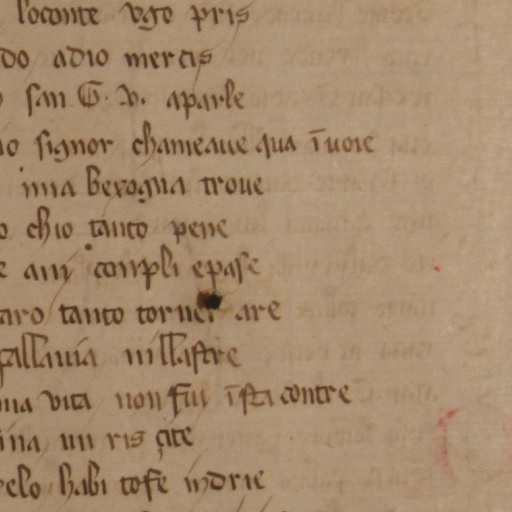 loconte vgo pris
do adio mercis
san G. v. aparle
io signor chameaue qua īuoie
mia bexogna troue
o chio tanto pene
e ani conpli epase
aro tanto torner are
fallauia nillastre
ua vita non fui īsta contre
ina un ris çite
relo habi tose indrie